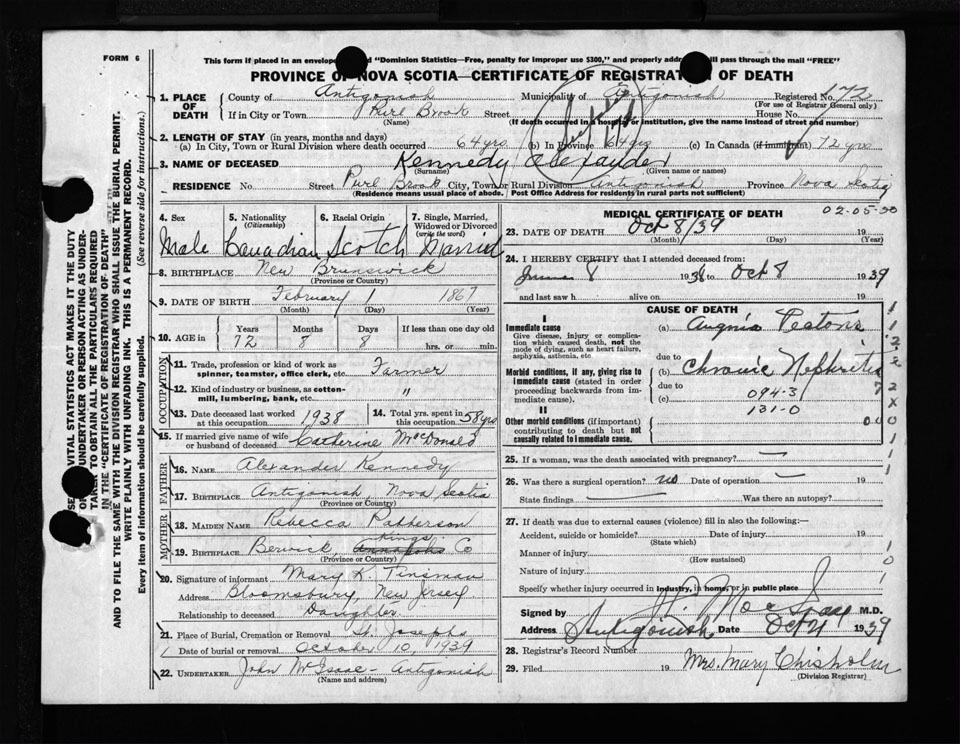 FORM 6
This form if placed in an envelope "Dominion Statistics—Free, penalty for improper use $300," and properly will pass through the mail "FREE"
PROVINCE OF NOVA SCOTIA—CERTIFICATE OF REGISTRATION OF DEATH
1. PLACE OF DEATH County of Antigonish Municipality of Antigonish Registered No. 172
(For use of Registrar General only)
If in City or Town Purl Brook Street House No.
(Name) (If death occurred in a hospital or institution, give the name instead of street and number)
2. LENGTH OF STAY (in years, months and days)
(a) In City, Town or Rural Division where death occurred 64 yrs (b) In Province 64 yrs (c) In Canada (if immigrant) 72 yrs
3. NAME OF DECEASED Kennedy Alexander
(Surname) (Given name or names)
RESIDENCE No. Street Purl Brook City, Town or Rural Division Antigonish Province Nova Scotia
(Residence means usual place of abode. Post Office Address for residents in rural parts not sufficient)
4. Sex 5. Nationality (Citizenship) 6. Racial Origin 7. Single, Married, Widowed or Divorced (write the word)
Male Canadian Scotch Married
8. BIRTHPLACE New Brunswick
(Province or Country)
9. DATE OF BIRTH February 1 1867
(Month) (Day) (Year)
10. AGE in Years Months Days If less than one day
72 8 8 hrs. or min.
OCCUPATION
11. Trade, profession or kind of work as spinner, teamster, office clerk, etc. Farmer
12. Kind of industry or business, as cotton-mill, lumbering, bank, etc. "
13. Date deceased last worked at this occupation 1938 14. Total yrs. spent in this occupation 58 yrs
15. If married give name of wife or husband of deceased Catherine McDonald
FATHER
16. NAME Alexander Kennedy
17. BIRTHPLACE Antigonish, Nova Scotia
(Province or Country)
MOTHER
18. MAIDEN NAME Rebecca Patterson
19. BIRTHPLACE Berwick, Kings Co
(Province or Country)
20. Signature of informant Mary K. Tinsman
Address Bloomsbury, New Jersey
Relationship to deceased Daughter
21. Place of Burial, Cremation or Removal St. Josephs
Date of burial or removal October 10, 1939
22. UNDERTAKER John McIsaac - Antigonish
(Name and address)
MEDICAL CERTIFICATE OF DEATH 02-05-30
23. DATE OF DEATH Oct 8/39 19
(Month) (Day) (Year)
24. I HEREBY CERTIFY that I attended deceased from:
8 1938 to Oct 8 1939
and last saw h alive on 19
CAUSE OF DEATH
I
Immediate cause (a) Angina Pectoris
Give disease, injury or complication which caused death, not the mode of dying, such as heart failure, asphyxia, asthenia, etc.
due to
Morbid conditions, if any, giving rise to immediate cause (stated in order proceeding backwards from immediate cause). (b) Chronic Nephritis
due to 094-3
(c) 131-0
II
Other morbid conditions (if important) contributing to death but not causally related to immediate cause.
25. If a woman, was the death associated with pregnancy? —
26. Was there a surgical operation? no Date of operation — 19
State findings — Was there an autopsy?
27. If death was due to external causes (violence) fill in also the following:—
Accident, suicide or homicide? Date of injury 19
(State which)
Manner of injury
(How sustained)
Nature of injury
Specify whether injury occurred in industry, in home, or in public place
Signed by M.D.
Address Antigonish Date Oct 1939
28. Registrar's Record Number
29. Filed 19 Mrs. Mary Chisholm
(Division Registrar)
VITAL STATISTICS ACT MAKES IT THE DUTY
UNDERTAKER OR PERSON ACTING AS UNDER-
TAKER TO OBTAIN ALL THE PARTICULARS REQUIRED
IN THE "CERTIFICATE OF REGISTRATION OF DEATH"
AND TO FILE THE SAME WITH THE DIVISION REGISTRAR WHO SHALL ISSUE THE BURIAL PERMIT.
WRITE PLAINLY WITH UNFADING INK. THIS IS A PERMANENT RECORD.
Every item of information should be carefully supplied. (See reverse side for instructions.)